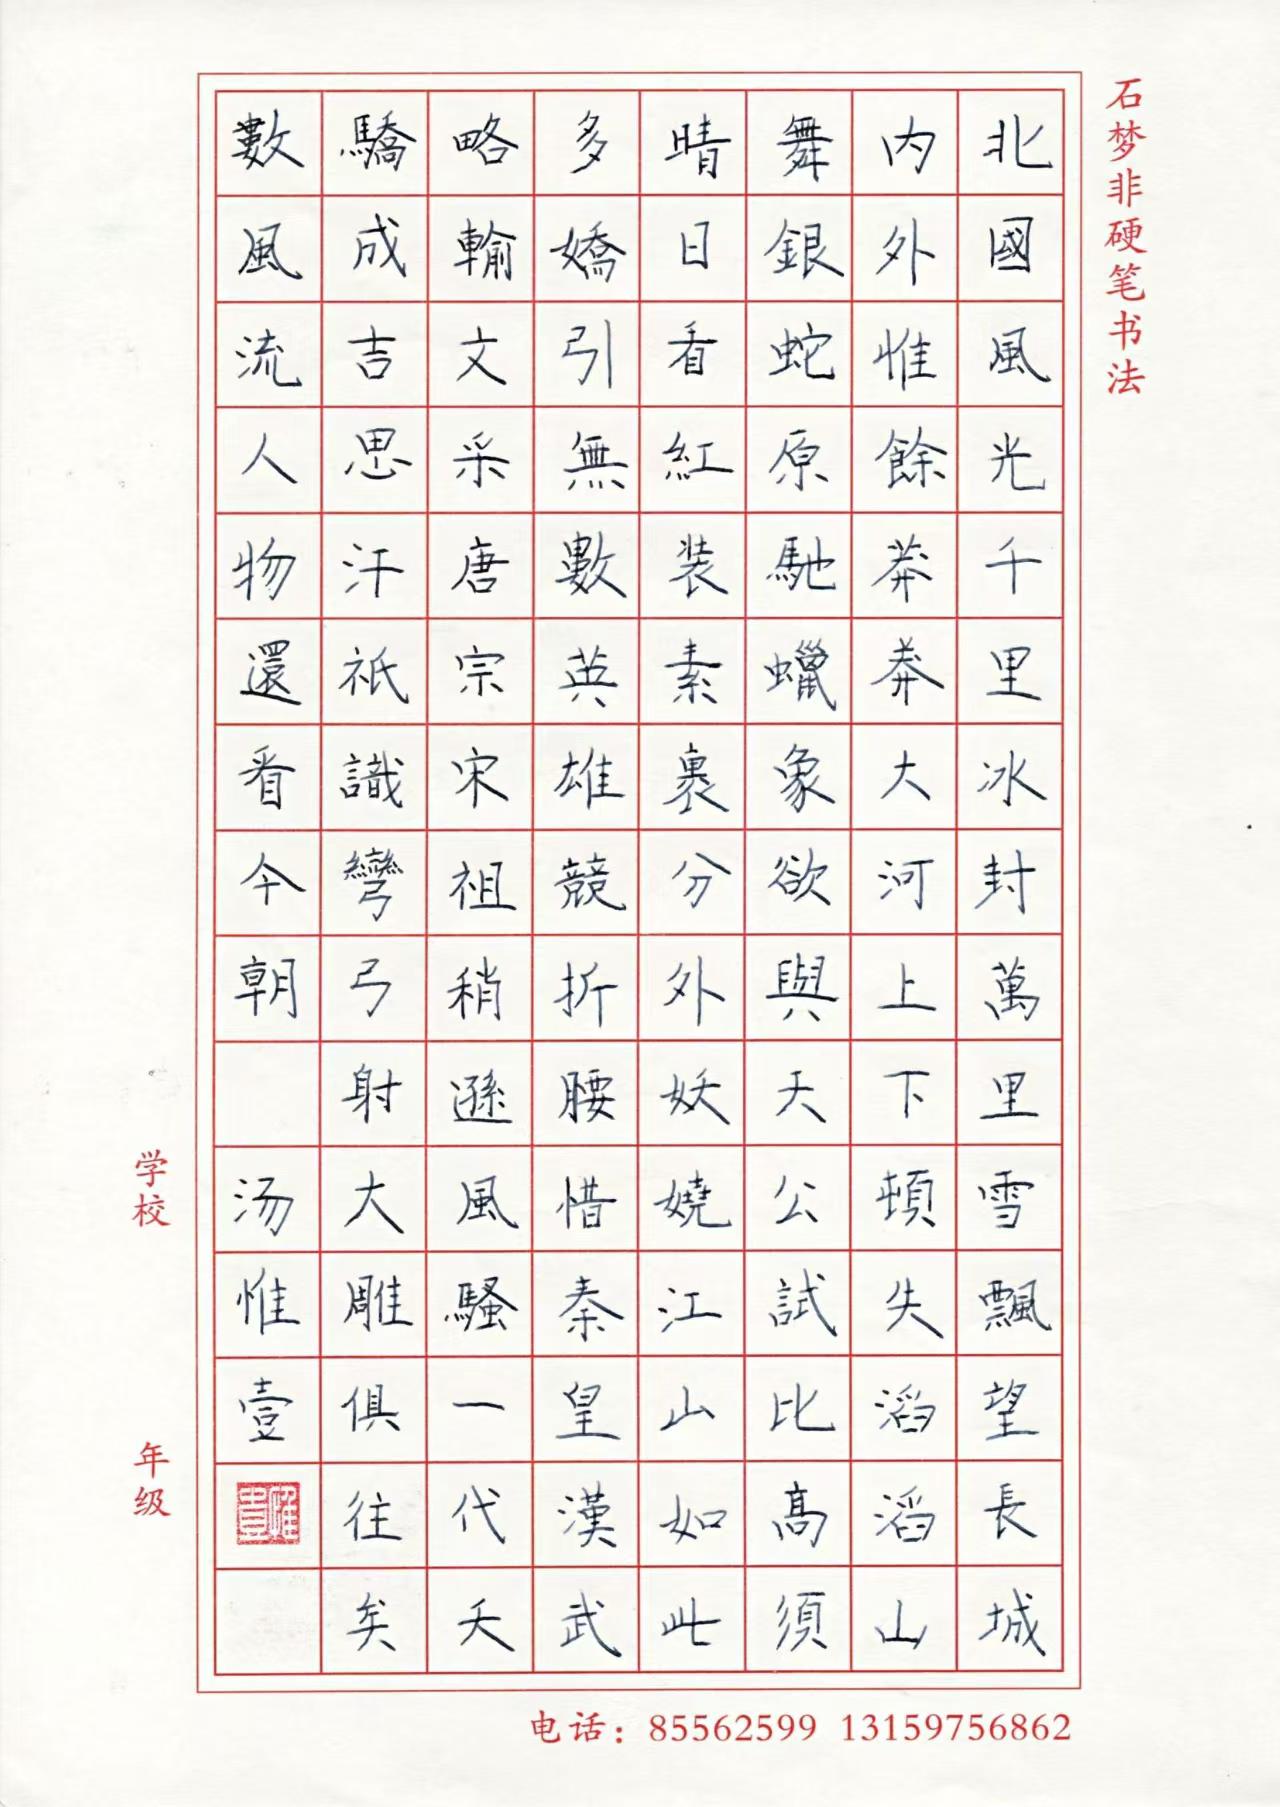 石梦非硬笔书法
北國風光千里冰封萬里雪飄望長城
内外惟餘莽莽大河上下頓失滔滔山
舞銀蛇原馳蠟象欲與天公試比高須
晴日看紅装素裹分外妖嬈江山如此
多嬌引無數英雄競折腰惜秦皇漢武
略輸文采唐宗宋祖稍遜風騷一代天
驕成吉思汗祇識彎弓射大雕俱往矣
數風流人物還看今朝 汤惟壹
学校
年级
电话：85562599 13159756862